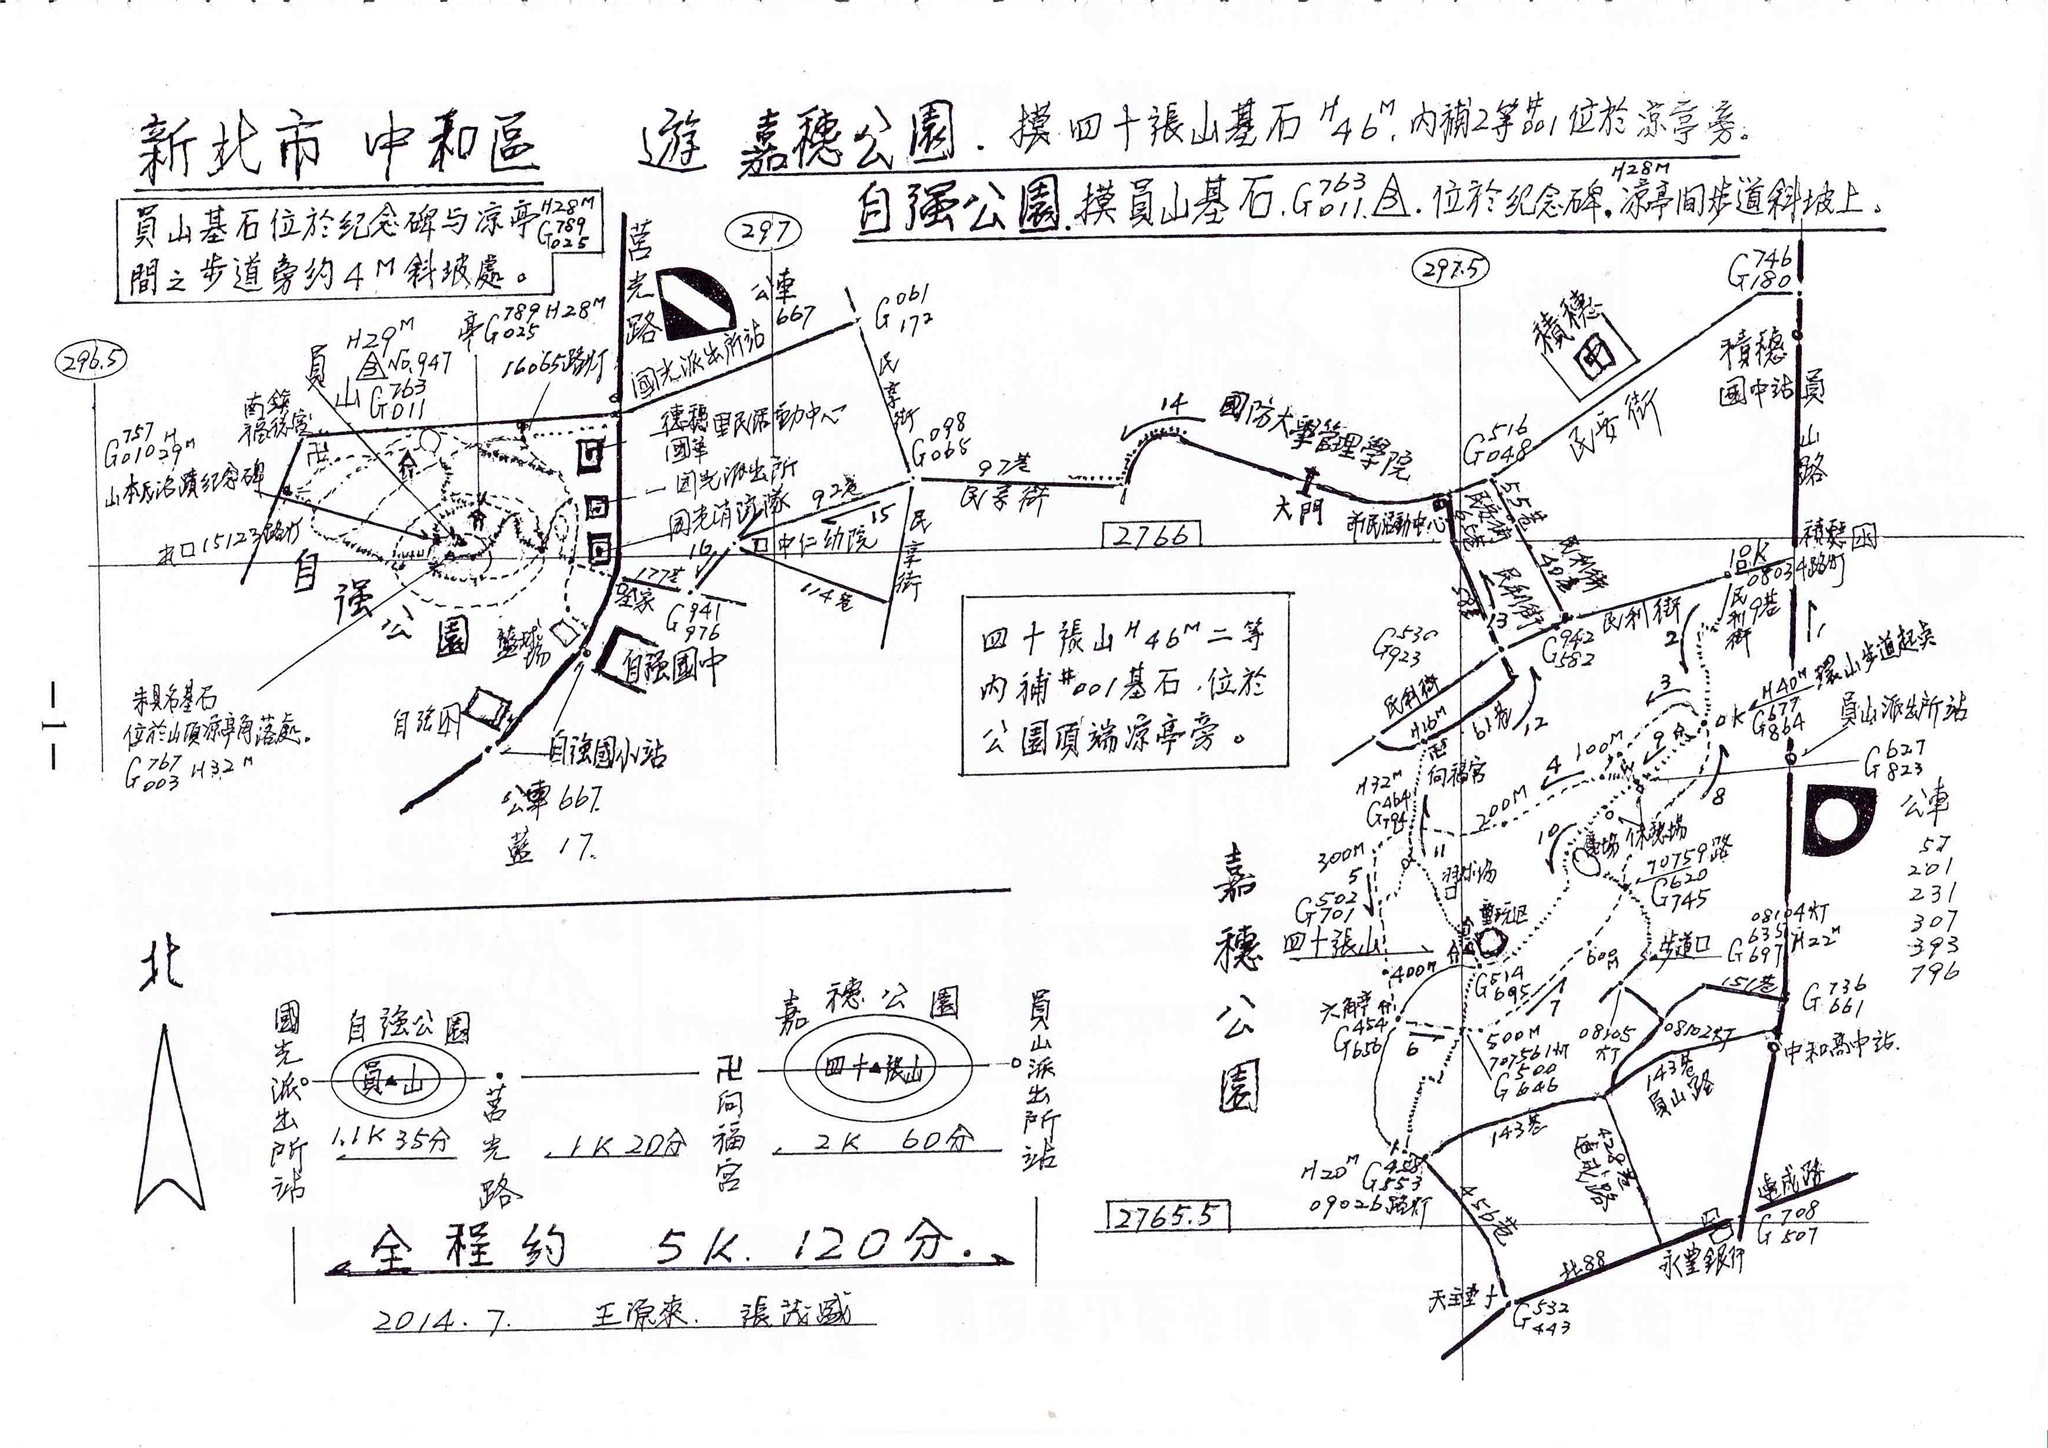 新北市 中和區 遊 嘉穗公園. 摸四十張山基石 H46M. 內補2等#001位於涼亭旁。
自強公園. 摸員山基石. G763 011. 位於紀念碑. H28M 涼亭間步道斜坡上。
員山基石位於紀念碑与涼亭 H28M G789 025
間之步道旁約4M斜坡處。
莒光路
297
公車
667
國光派出所站
G061 172
民享街
296.5
員山
H29M
No.947
G763 011
亭G789 025 H28M
16065路灯
南鎮
福德宮
G757 010 H29M
山本氏
紀念碑
15123路灯
自強公園
里民活動中心
國光派出所
國光消防隊
G098 065
92巷
15
中仁幼院
16
177巷
114巷
G941 976
民享街
97巷
民享街
14
國防大學管理學院
大門
2766
市民活動中心
297.5
G516 048
積穗
民安街
G746 180
積穗
國中站
員山路
55巷
民利街
40巷
民利街
58巷
13
G942 582
民利街
10K
08034路灯
民利街9巷
1
2
3
H40M 環山步道起点
0K G677 864
員山派出所站
G627 823
公車
57
201
231
307
393
796
G530 923
民利街
H16M
61巷
12
向福宮
H32M
G464 794
100M
4
9
8
200M
10
11
300M
5
G502 701
四十張山
400M
G514 695
70759路
G620 745
600M
步道口
08104灯
G635 697 H22M
151巷
G736 661
中和高中站
08105灯
08102灯
143巷
員山路
六角亭
G454 656
6
7
500M
70756灯
G500 646
143巷
428巷
連成路
連成路
G708 507
永豐銀行
北88
456巷
H20M G458 553
09026路灯
天主堂
G532 443
2765.5
嘉穗公園
四十張山 H46M 二等
內補#001基石.位於
公園頂端涼亭旁。
籃球場
自強國中
自強國小站
公車667.
藍17.
基石
位於山頂涼亭角落處。
G767 003 H32M
北
國光派出所站
自強公園
員山
莒光路
卍向福宮
嘉穗公園
四十張山
員山派出所站
1.1K 35分
1K 20分
2K 60分
全程約 5K. 120分.
2014.7. 王源來. 張茂盛
－1－